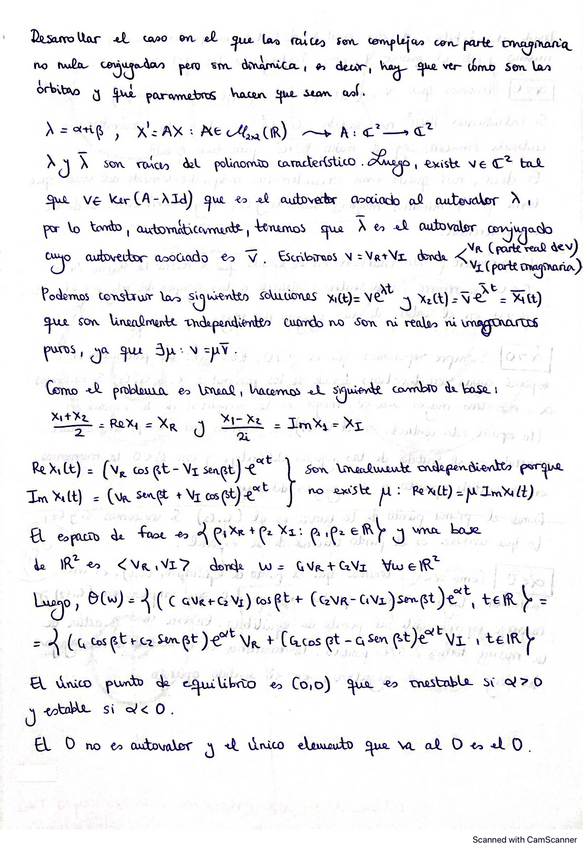 Desarrollar el caso en el que las raíces son complejas con parte imaginaria
no nula conjugadas pero sin dinámica, es decir, hay que ver cómo son las
órbitas y qué parametros hacen que sean así.
λ = α+iβ , X' = AX : A ∈ M₂ₓ₂(ℝ) ⟿ A: ℂ² → ℂ²
λ y λ̄ son raíces del polinomio característico. Luego, existe v ∈ ℂ² tal
que v ∈ Ker(A-λId) que es el autovector asociado al autovalor λ,
por lo tanto, automáticamente, tenemos que λ̄ es el autovalor conjugado
cuyo autovector asociado es v̄. Escribimos v = V_R + V_I donde < V_R (parte real de v)
V_I (parte imaginaria)
Podemos construir las siguientes soluciones x₁(t) = v e^{λt} y x₂(t) = v̄ e^{λ̄t} = x̄₁(t)
que son linealmente independientes cuando no son ni reales ni imaginarios
puros, ya que ∃μ: v = μv̄.
Como el problema es lineal, hacemos el siguiente cambio de base:
(x₁+x₂)/2 = Re x₁ = X_R y (x₁-x₂)/2i = Im x₁ = X_I
Re x₁(t) = (V_R cos βt - V_I sen βt) e^{αt} } son linealmente independientes porque
Im x₁(t) = (V_R sen βt + V_I cos βt) e^{αt} no existe μ: Re x₁(t) = μ Im x₁(t)
El espacio de fase es { ρ₁X_R + ρ₂X_I : ρ₁, ρ₂ ∈ ℝ } y una base
de ℝ² es <V_R, V_I> donde w = C₁V_R + C₂V_I ∀w ∈ ℝ²
Luego, θ(w) = { ( ( C₁V_R + C₂V_I ) cos βt + (C₂V_R - C₁V_I) sen βt ) e^{αt}, t ∈ ℝ } =
= { (C₁ cos βt + C₂ sen βt) e^{αt} V_R + (C₂ cos βt - C₁ sen βt) e^{αt} V_I, t ∈ ℝ }
El único punto de equilibrio es (0,0) que es inestable si α > 0
y estable si α < 0.
El 0 no es autovalor y el único elemento que va al 0 es el 0.
Scanned with CamScanner